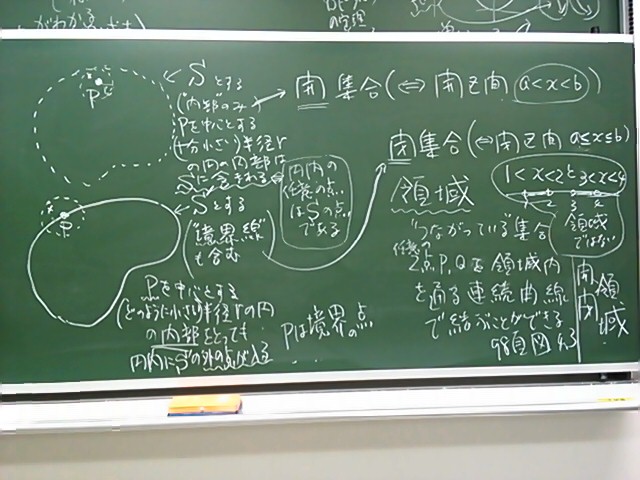 がわかる
P
Sとする
("内部"のみ)
Pを中心とする
(十分小さい)半径r
の円の内部は
Sに含まれる
円内の
任意の点
はSの点
である
開集合(⇔開区間 a<x<b)
閉集合(⇔閉区間 a≤x≤b)
P
Sとする
"境界線"
も含む
Pを中心とする
(どのように小さい)半径rの円
の内部をとっても
円内にSの外の点が入る
Pは境界の点
領域
1<x<2と3<x<4
1 2 3 4
領域
ではない
"つながっている"集合
任意の
2点P,Qを領域内
を通る連続曲線
で結ぶことができる
98頁図4.3
開領域
閉領域